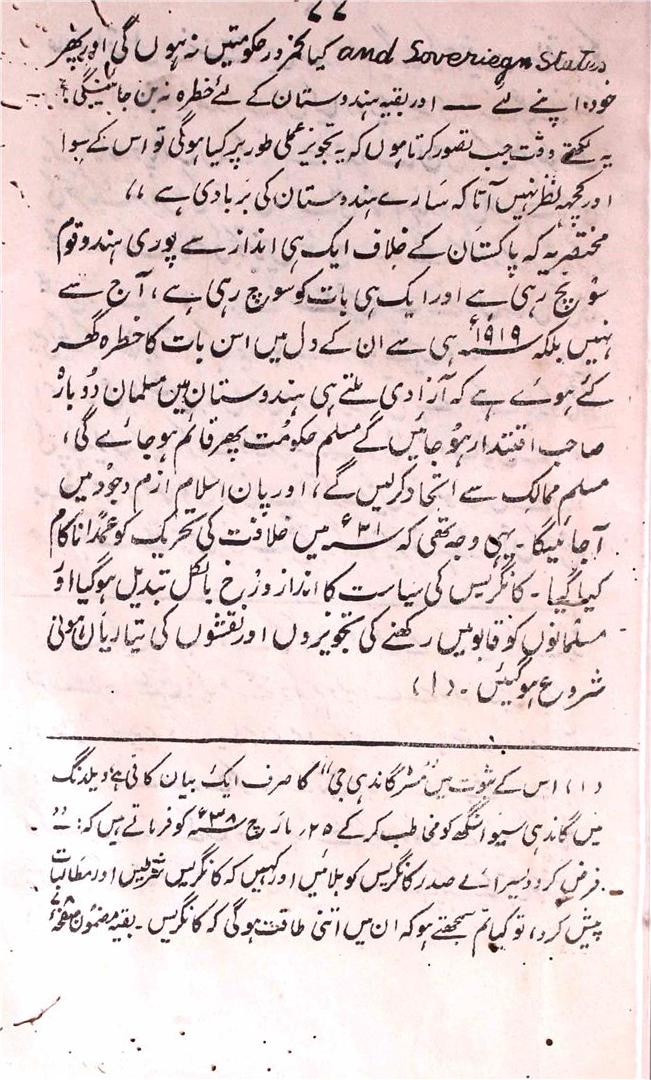 ۷۷
and Soveriegn Status کیا کمزور حکومتیں نہ ہوں گی اور پھر
خود اپنے لئے — اور بقیہ ہندوستان کے لئے خطرہ نہ بن جائینگی؟
یہ لکھتے وقت جب تصور کرتا ہوں کہ یہ تجویز عملی طور پر کیا ہوگی تو اس کے سوا
اور کچھ نظر نہیں آتا کہ سارے ہندوستان کی بربادی ہے ،،
مختصر یہ کہ پاکستان کے خلاف ایک ہی انداز سے پوری ہندو قوم
سوچ رہی ہے اور ایک ہی بات کو سوچ رہی ہے ، آج سے
نہیں بلکہ ۱۹۱۹ء ہی سے ان کے دل میں اس بات کا خطرہ گھر
کئے ہوئے ہے کہ آزادی ملتے ہی ہندوستان میں مسلمان دوبارہ
صاحب اقتدار ہو جائیں گے مسلم حکومت پھر قائم ہو جائے گی ،
مسلم ممالک سے اتحاد کر لیں گے ، اور پان اسلام ازم وجود میں
آجائیگا ۔ یہی وجہ تھی کہ ۳۱ء میں خلافت کی تحریک کو عمداً ناکام
کیا گیا ۔ کانگریس کی سیاست کا انداز و رخ بالکل تبدیل ہو گیا اور
مسلمانوں کو قابو میں رکھنے کی تجویزوں اور نقشوں کی تیاریاں ہونی
شروع ہو گئیں ۔ (۱)
(۱) اس کے ثبوت میں "مسٹر گاندھی جی" کا صرف ایک بیان کافی ہے ڈیلانگ
میں گاندھی سیوا سنگھ کو مخاطب کر کے ۲۵؍ مارچ ۳۸ء کو فرماتے ہیں کہ : "
فرض کرو ویسرائے صدر کانگریس کو بلائیں اور کہیں کہ کانگریس شرطیں اور مطالبات
پیش کرد، تو کیا تم سمجھتے ہو کہ ان میں اتنی طاقت ہوگی کہ کانگریس ۔ بقیہ مضمون صفحہ